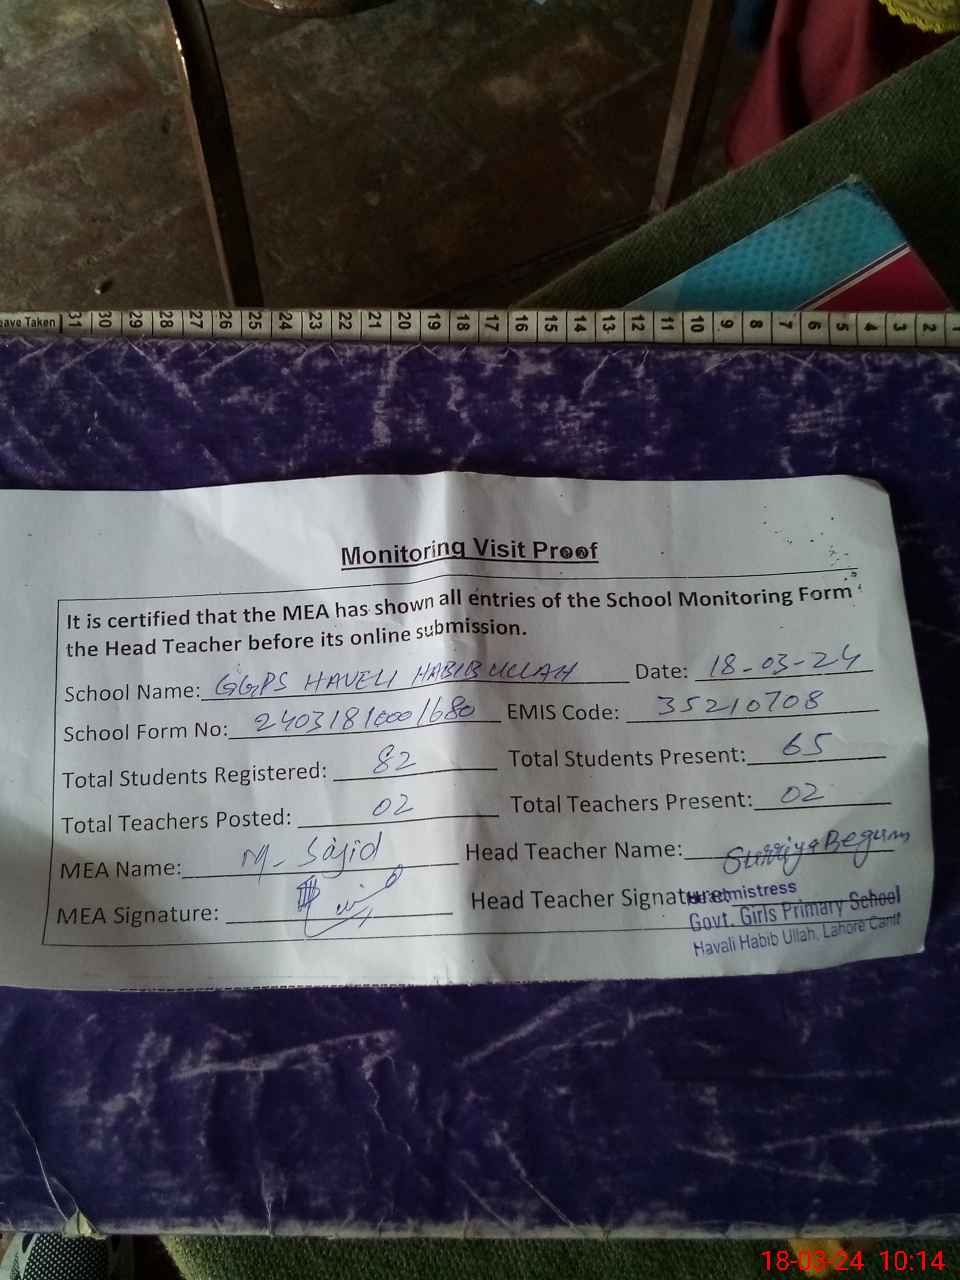 eave Taken 31 30 29 28 27 26 25 24 23 22 21 20 19 18 17 16 15 14 13 12 11 10 9 8 7 6 5 4 3 2 1
Monitoring Visit Proof
It is certified that the MEA has shown all entries of the School Monitoring Form
the Head Teacher before its online submission.
School Name: GGPS HAVELI HABIB ULLAH Date: 18-03-24
School Form No: EMIS Code: 35210708
Total Students Registered: 82 Total Students Present: 65
Total Teachers Posted: 02 Total Teachers Present: 02
MEA Name: M- Sajid Head Teacher Name: Surriya Begum
MEA Signature: Head Teacher Signature:
Headmistress
Govt. Girls Primary School
Havali Habib Ullah, Lahore Cantt
18-03-24 10:14